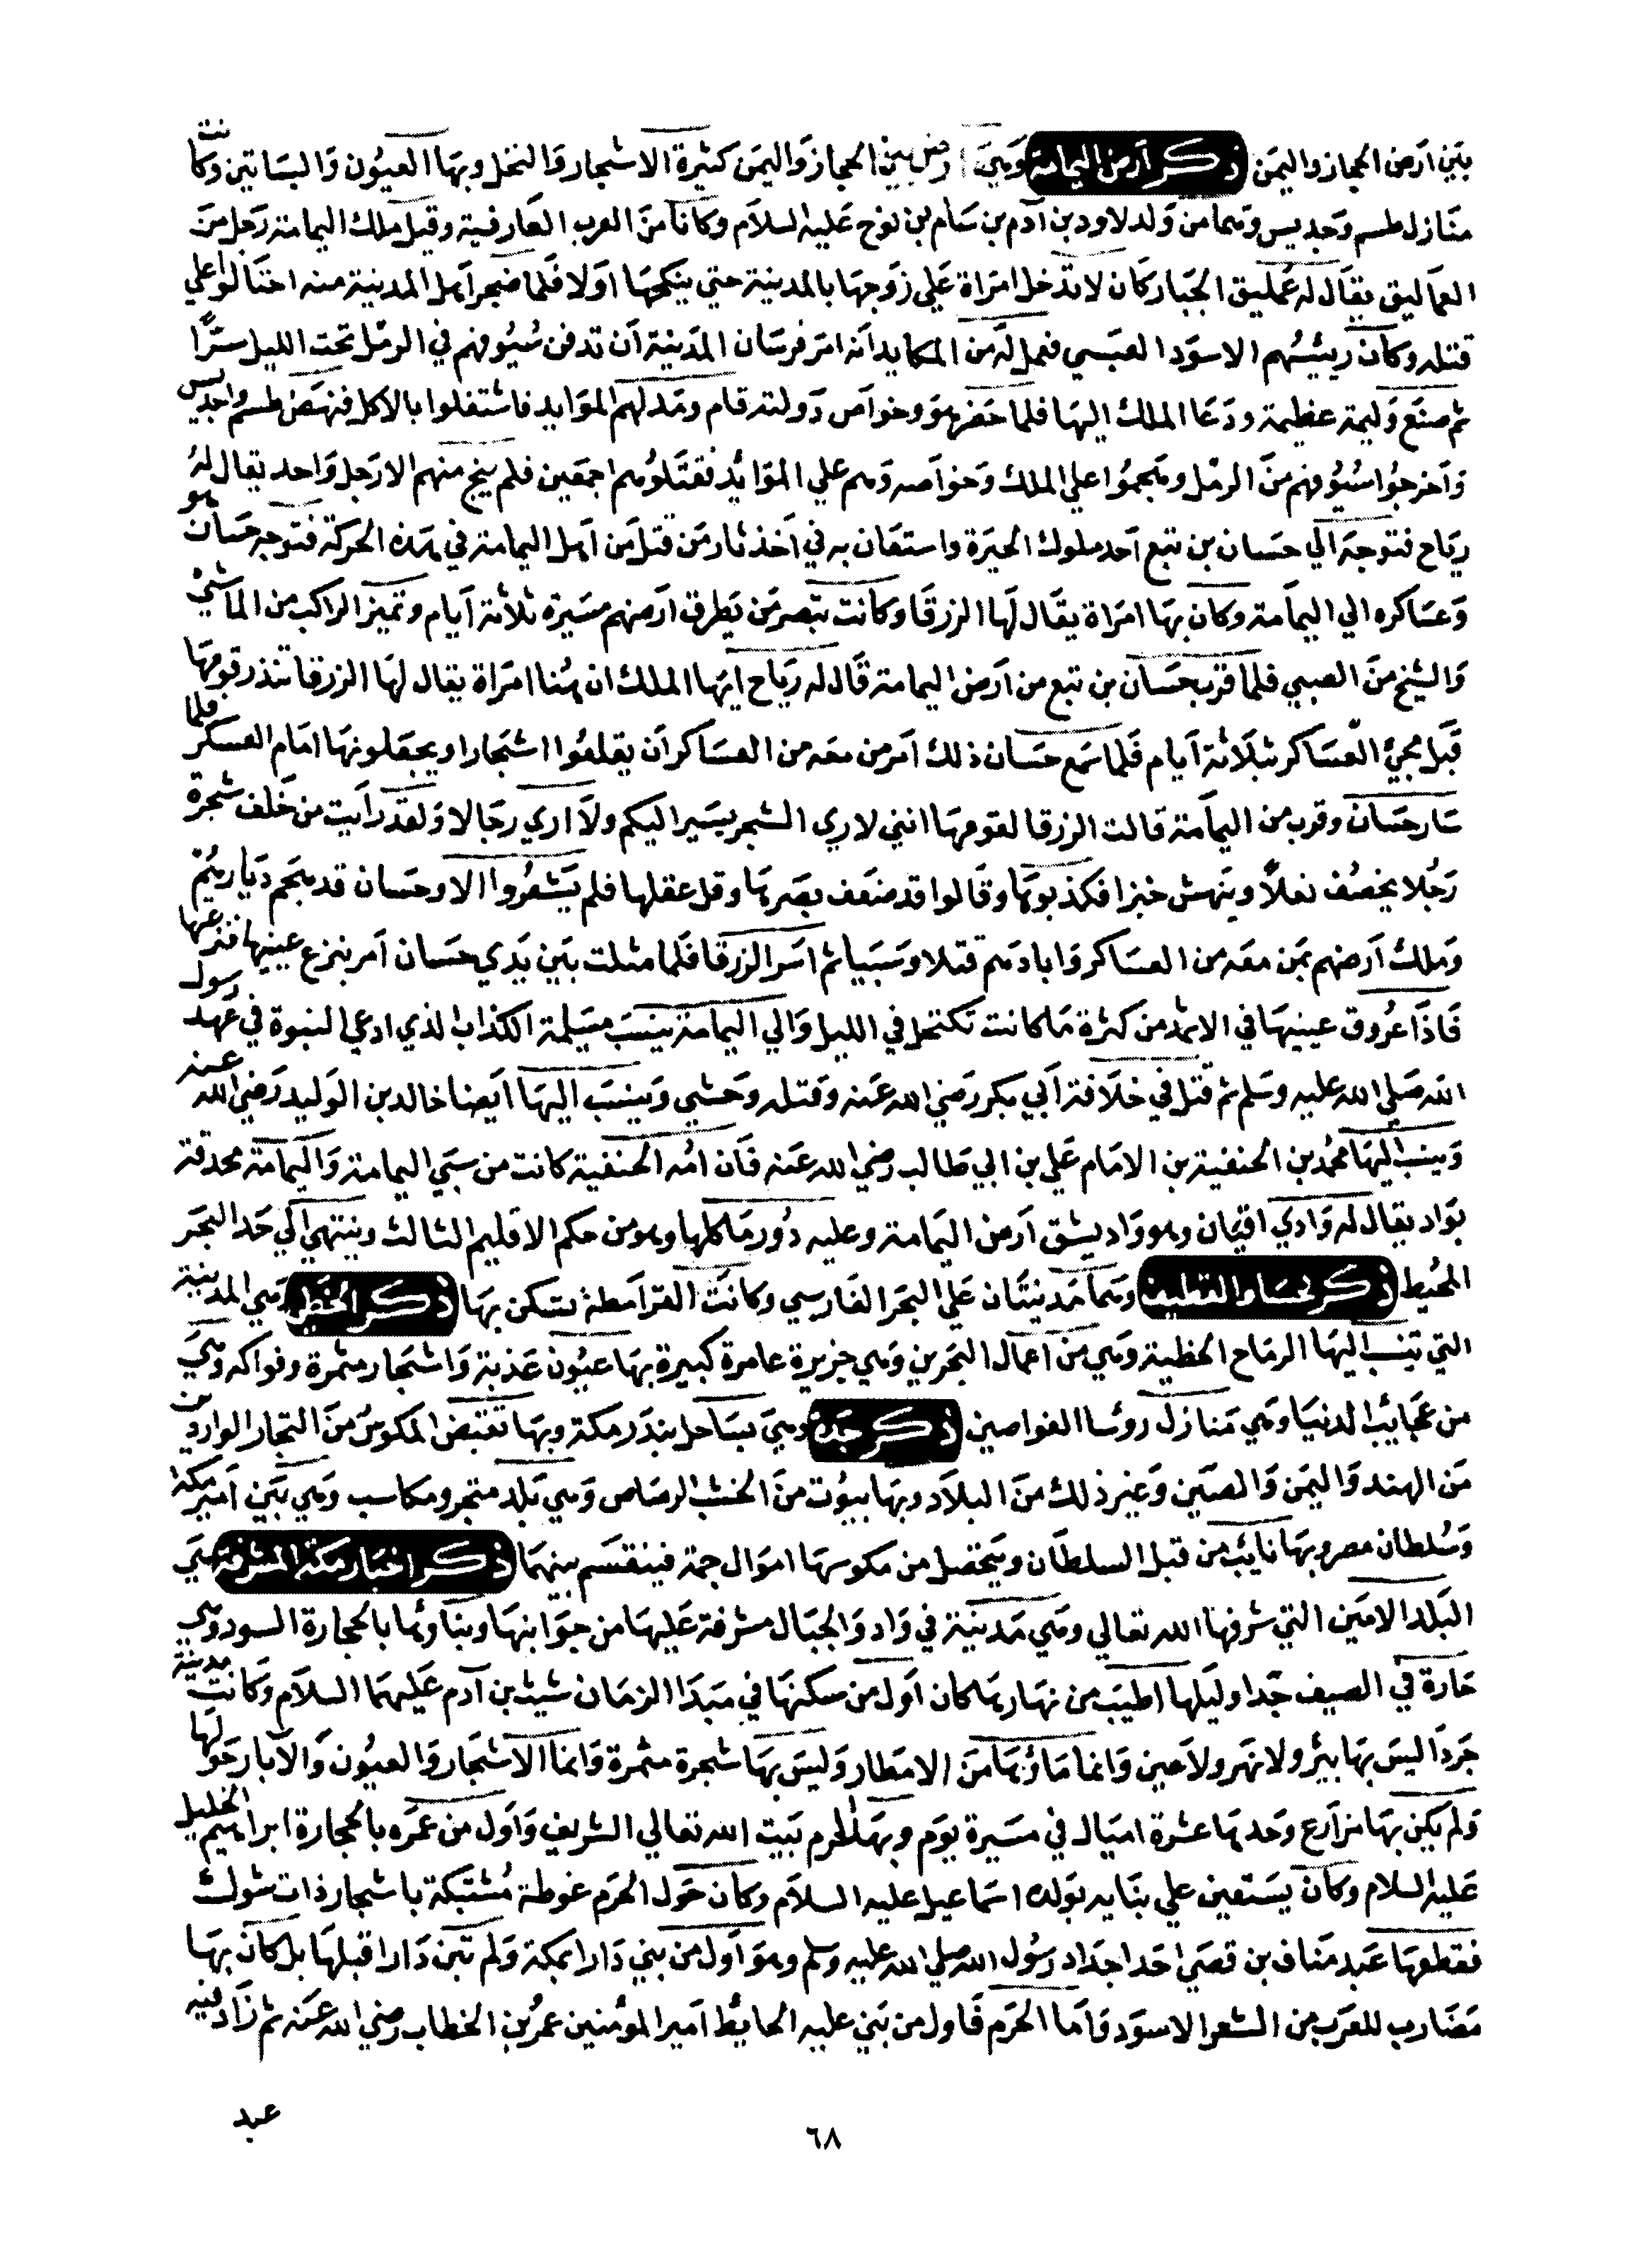 بين ارض الحجاز واليمن ذكر ارض اليمامة وهي ارض بين الحجاز واليمن كثيرة الاشجار والنخل وبها العيون والبساتين وكانت
منازل طسم وجديس وهما من ولد لاود بن آدم بن سام بن نوح عليه السلام وكانا من العرب العارفية وقيل ملك اليمامة رجل من
العماليق يقال له عمليق الجبار كان لا تدخل امراة علي زوجها بالمدينة حتي ينكحها اولا فلما ضجر اهل المدينة منه احتالوا علي
قتله وكان رييسهم الاسود العبسي فعمل له من المكايد انه امر فرسان المدينة ان تدفن سيوفهم في الرمل تحت الليل سرًّا
ثم صنع وليمة عظيمة ودعا الملك اليها فلما حضر هو وخواص دولته قام ومد لهم الموايد فاشتغلوا بالاكل فنهض طسم واجديس
واخرجوا سيوفهم من الرمل وهجموا علي الملك وخواصه وهم علي الموائد فقتلوهم اجمعين فلم ينج منهم الا رجل واحد يقال له
رياح فتوجه الي حسان بن تبع احد ملوك الحيرة واستعان به في اخذ ثار من قتل من اهل اليمامة في هذه الحركة فتوجه حسان هو
وعساكره الي اليمامة وكان بها امراة يقال لها الزرقا وكانت تبصر من يطرق ارضهم مسيرة ثلاثة ايام وتميز الراكب من الماشي
والشيخ من الصبي فلما قرب حسان بن تبع من ارض اليمامة قال له رياح ايها الملك ان هنا امراة يقال لها الزرقا تنذر قومها
قبل مجيّ العساكر بثلاثة ايام فلما سمع حسان ذلك امر من معه من العساكر ان يقلعوا اشجارا ويجعلونها امام العسكر فلما
سار حسان وقرب من اليمامة قالت الزرقا لقومها انني لاري الشجر يسير اليكم ولا اري رجالا ولقد رايت من خلف شجرة
رجلا يخصف نعلاً وينهش خبزا فكذبوها وقالوا قد ضعف بصرها وقل عقلها فلم يشعروا الا وحسان قد هجم ديارهم
وملك ارضهم بمن معه من العساكر وابادهم قتلا وسبيا ثم اسر الزرقا فلما مثلت بين يدي حسان امر بنزع عينيها فنزعها
فاذا عروق عينيها في الاثمد من كثرة ما كانت تكتحل في الليل والي اليمامة ينسب مسيلمة الكذاب الذي ادعي النبوة في عهد رسول
الله صلي الله عليه وسلم ثم قتل في خلافة ابي بكر رضي الله عنه وقتله وحشي وينسب اليها ايضا خالد بن الوليد رضي الله عنه
وينسب اليها محمد بن الحنفية بن الامام علي بن ابي طالب رضي الله عنه فان امه الحنفية كانت من سبي اليمامة واليمامة محدقة
بواد يقال له وادي اقتان وهو واد يشق ارض اليمامة وعليه دورها كلها وهو من حكم الاقليم الثالث وينتهي الي حد البحر
المحيط ذكر لحسا والقطيف وهما مدينتان علي البحر الفارسي وكانت القرامطة تسكن بها ذكر الخط وهي المدينة
التي تنسب اليها الرماح الخطية وهي من اعمال البحرين وهي جزيرة عامرة كبيرة بها عيون عذبة واشجار مثمرة وفواكه وهي
من عجايب الدنيا وهي منازل روسا الغواصين ذكر جدة وهي بساحل بندر مكة وبها تقبض المكوس من التجار الواردين
من الهند واليمن والصين وغير ذلك من البلاد وبها بيوت من الخشب الرصاص وهي بلد متجر ومكاسب وهي بين امير مكة
وسلطان مصر وبها نايب من قبل السلطان ويتحصل من مكوسها اموال جمة فينقسم بينهما ذكر اخبار مكة المشرفة وهي
البلد الامين التي شرفها الله تعالي وهي مدينة في واد والجبال مشرفة عليها من جوانبها وبناؤها بالحجارة السود وهي
حارة في الصيف جدا وليلها اطيب من نهارها كان اول من سكنها في مبدا الزمان شيث بن آدم عليهما السلام وكانت مدينة
جردا ليس بها بيئر ولا نهر ولا عين وانما ماؤها من الامطار وليس بها شجرة مثمرة وانما الاشجار والعيون والآبار حولها
ولم يكن بها مزارع وحدها عشرة اميال في مسيرة يوم وبها الحرم بيت الله تعالي الشريف واول من عمره بالحجارة ابراهيم الخليل
عليه السلام وكان يستعين علي بنايه بولده اسماعيل عليه السلام وكان حول الحرم غوطة مشتبكة باشجار ذات شوك
فقطعها عبد مناف بن قصي احد اجداد رسول الله صلي الله عليه وسلم وهو اول من بني دارا بمكة ولم تبن دارا قبلها بل كان بها
مضارب للعرب من الشعر الاسود واما الحرم فاول من بني عليه الحايط امير المومنين عمر بن الخطاب رضي الله عنه ثم زاد فيه
عبد
٦٨